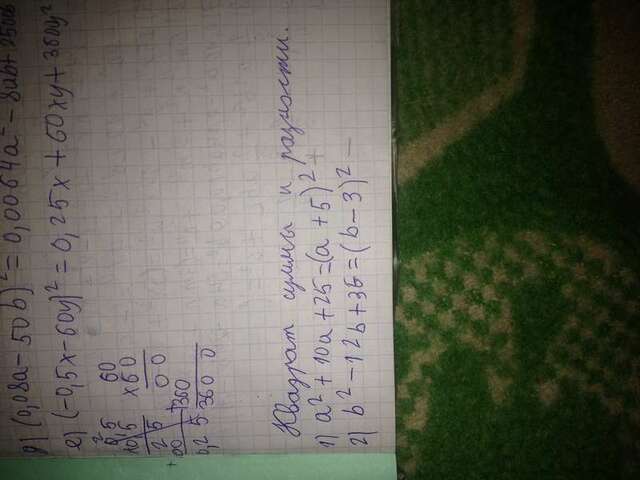 д) (0,08a - 50b)² = 0,0064a² - 8ab + 2500b
е) (-0,5x - 60y)² = 0,25x + 60xy + 3600y²
0,5 60
x0 5 x60
2 5 00
+ 00 +360
0,2 5 3600
Квадрат суммы и разности.
1) a² + 10a + 25 = (a + 5)² +
2) b² - 12b + 36 = (b - 3)² -